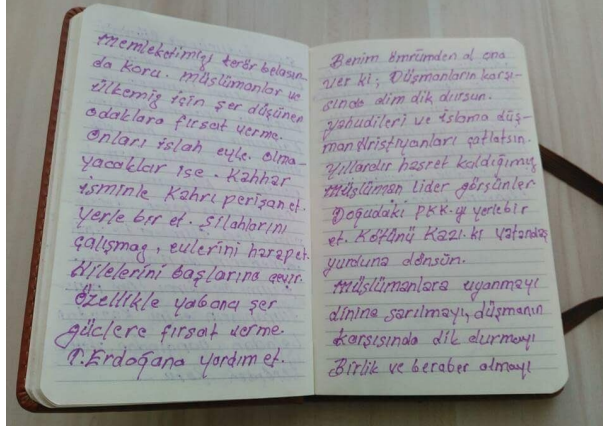 Memleketimizi terör belasın-
da koru. müslümanlar ve
ülkemiz için şer düşünen
odaklara fırsat verme.
onları ıslah eyle. olma-
yacaklar ise. Kahhar
isminle Kahrı perişan et.
yerle bir et. Silahlarını
çalışmaz, evlerini harap et.
Hilelerini başlarına çevir.
Özellikle yabancı şer
güçlere fırsat verme.
T.Erdoğana yardım et.
Benim ömrümden al ona
ver ki; Düşmanların karşı-
sında dim dik dursun.
yahudileri ve islama düş-
man Hristiyanları çatlatsın.
Yıllardır hasret kaldığımız
müslüman lider görsünler.
Doğudaki PKK-yı yerlebir
et. Kökünü Kazı. ki vatandaş
yurduna dönsün.
müslümanlara uyanmayı
dinine sarılmayı, düşmanın
karşısında dik durmayı
Birlik ve beraber olmayı